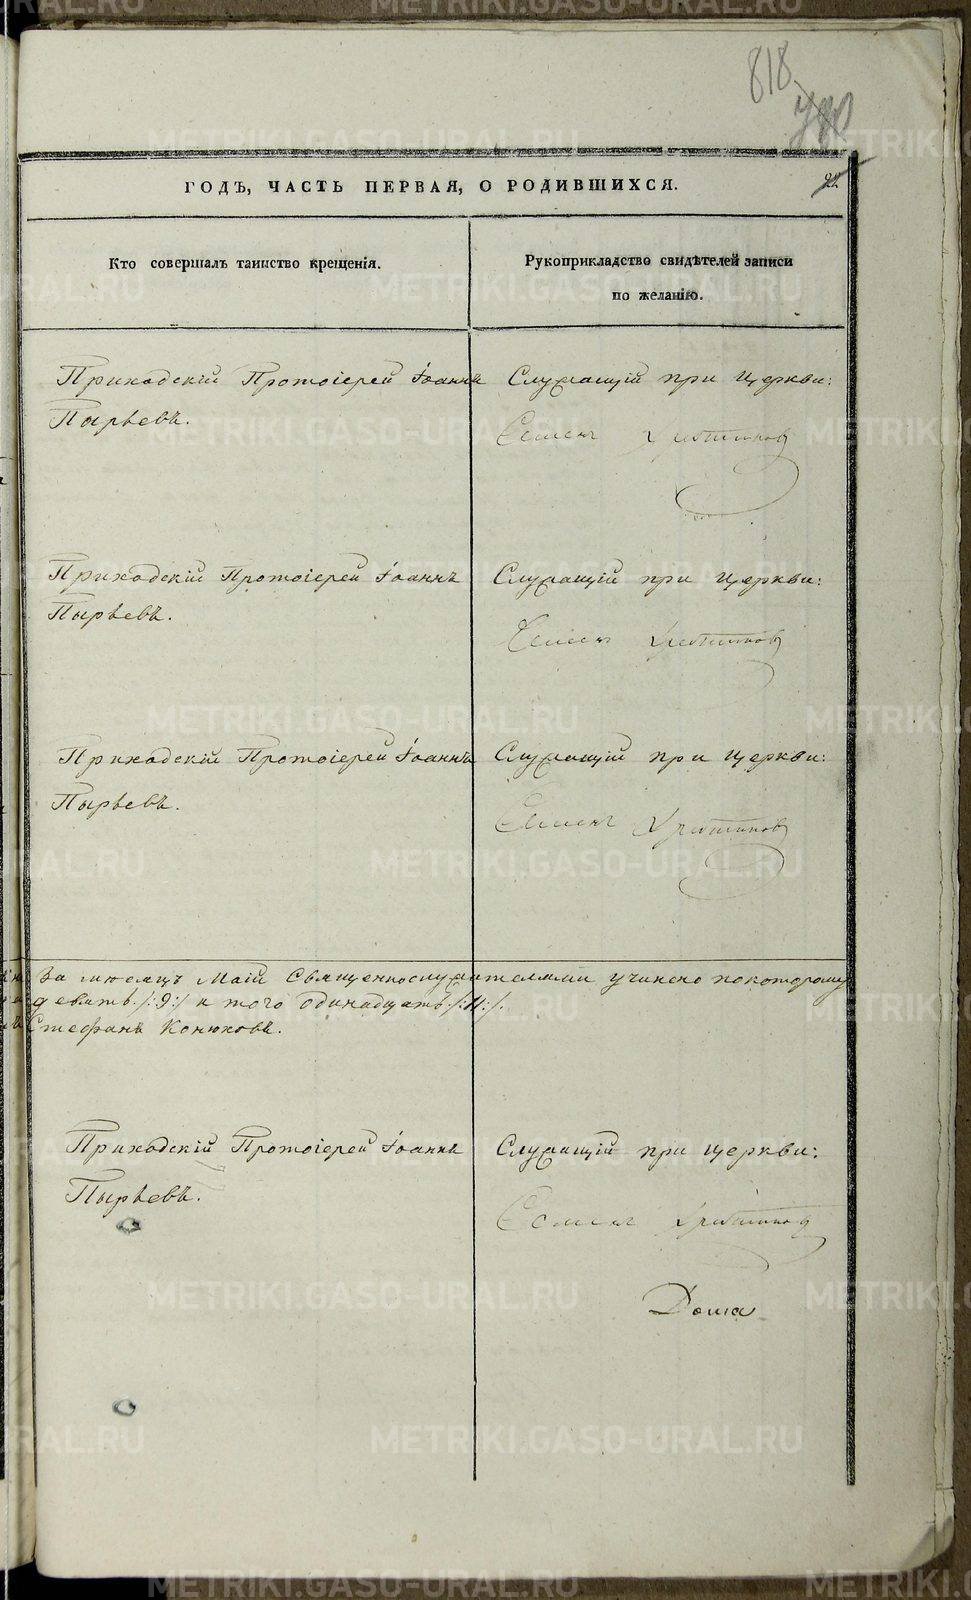 818
ГОДЪ, ЧАСТЬ ПЕРВАЯ, О РОДИВШИХСЯ.
Кто совершалъ таинство крещенія.
Рукоприкладство свидѣтелей записи
по желанію.
Приходскій Протоіерей Іоаннъ
Пырьевъ.
Служащій при Церкви:
Семенъ
Приходскій Протоіерей Іоаннъ
Пырьевъ.
Служащій при Церкви:
Семенъ
Приходскій Протоіерей Іоаннъ
Пырьевъ.
Служащій при Церкви:
Семенъ
За мѣсяцъ Маій Священнослужителями учинено по которому
девять /:9:/ и того одинадцать /:11:/.
Стефанъ Конюховъ.
Приходскій Протоіерей Іоаннъ
Пырьевъ.
Служащій при церкви:
Семенъ
Дома
METRIKI.GASO-URAL.RU